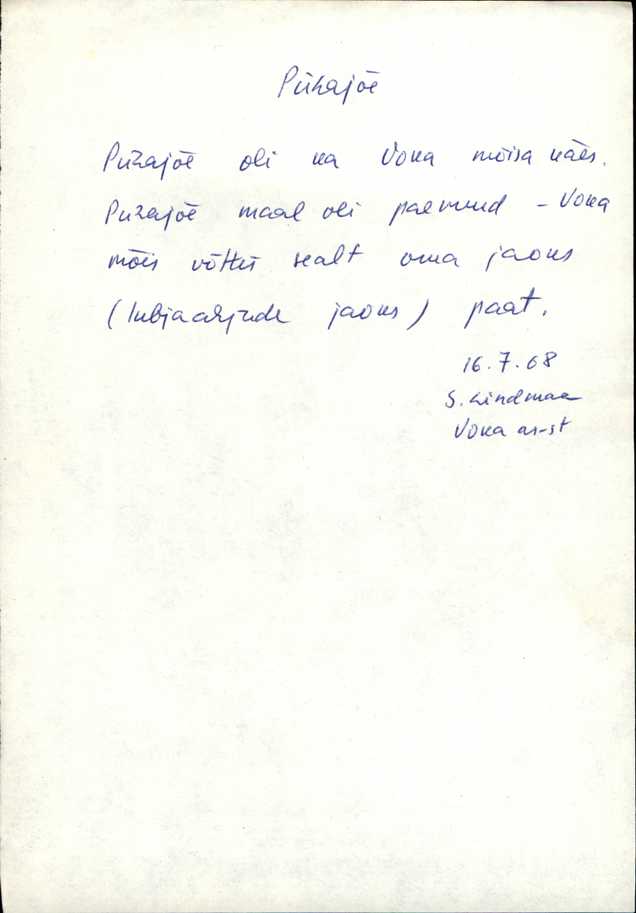 Pühajõe
Pühajõe oli ka Voka mõisa käes.
Pühajõe maal oli paemurd – Voka
mõis võttis sealt oma jaoks
(lubjaahjude jaoks) paat.
16.7.68
S. Lindmäe
Voka as-st